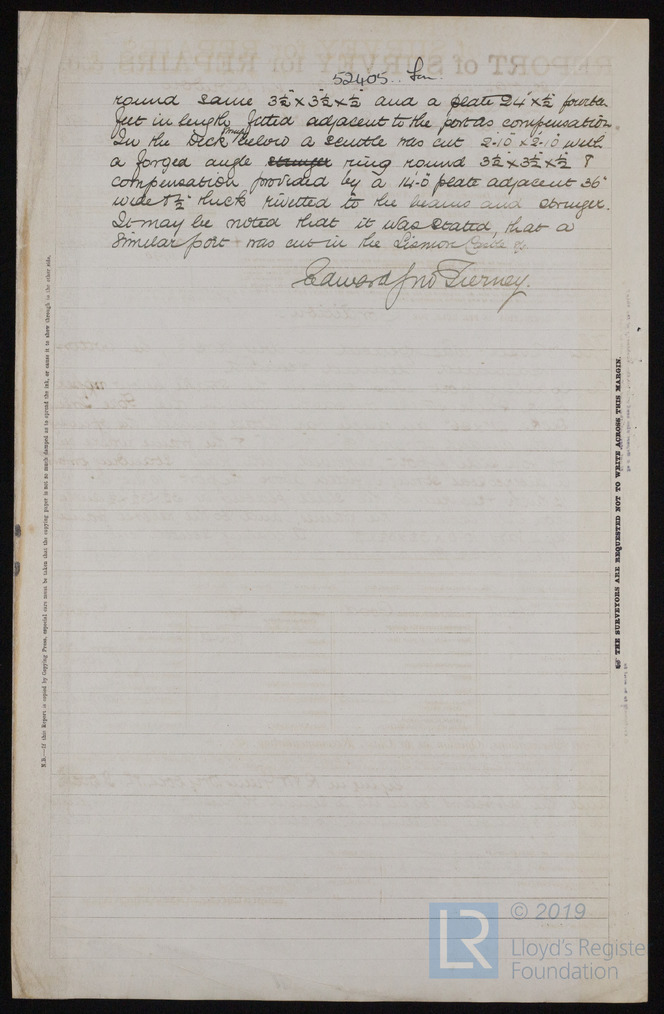 52405. Lon
round same 3½" x 3½ x ½ and a plate 24" x ½ fourteen
feet in length fitted adjacent to the port as compensation.
In the Deck immy below a scuttle was cut 2'-10" x 2'-10" with
a forged angle stringer ring round 3½ x 3½ x ½ &
compensation provided by a 14'-0" plate adjacent 36"
wide & ½" thick rivetted to the beams and stringer.
It may be noted that it was stated, that a
similar port was cut in the Lismore Castle
Edward Jno Tierney.
N.B.—If this Report is copied by Copying Press, especial care must be taken that the copying paper is not so much damped as to spread the ink, or cause it to show through to the other side.
THE SURVEYORS ARE REQUESTED NOT TO WRITE ACROSS THIS MARGIN.
REPORT of SURVEY for REPAIRS, &c.
LR
© 2019
Lloyd's Register
Foundation